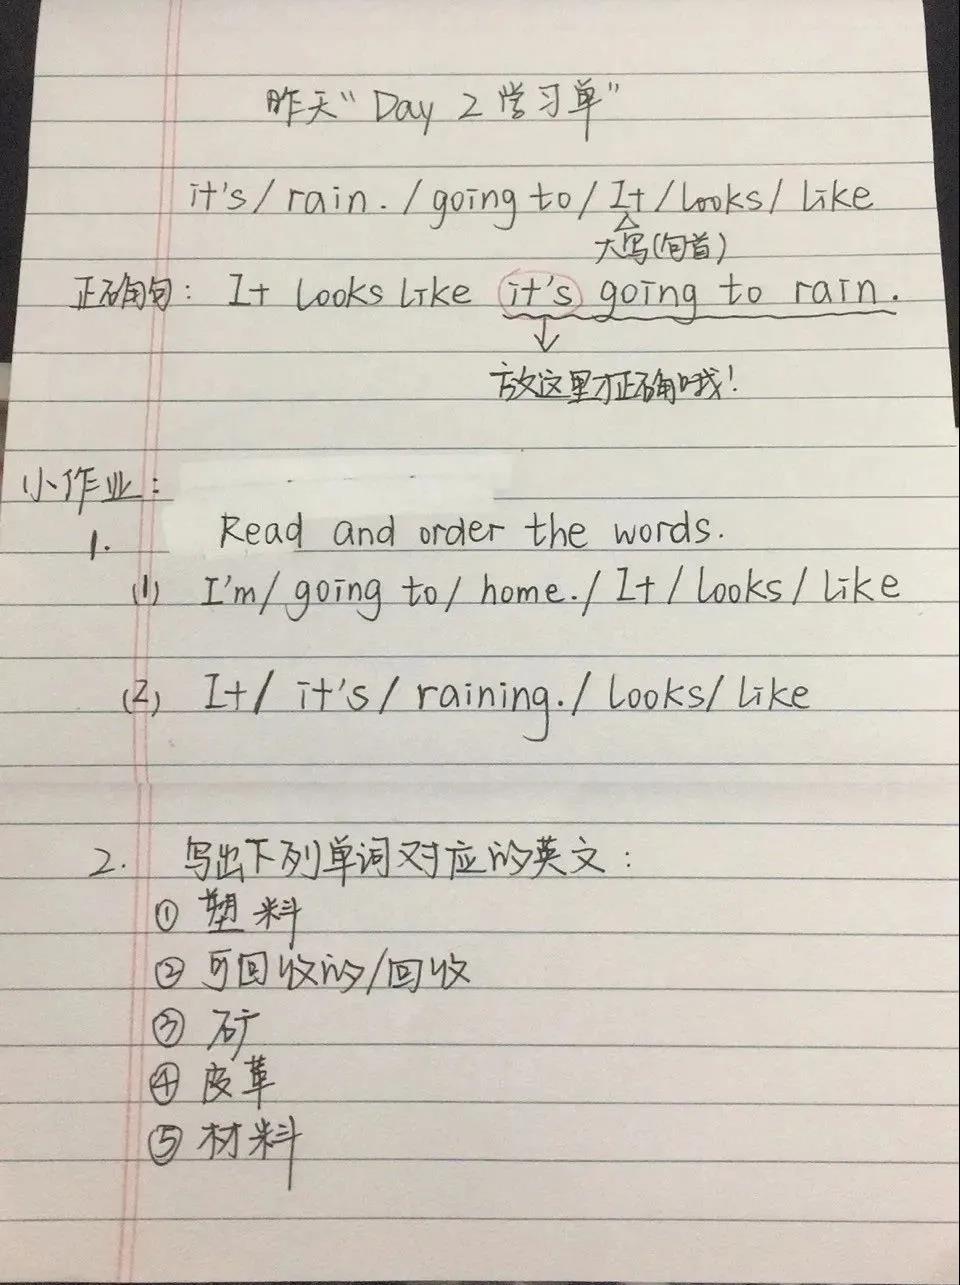 昨天“Day 2 学习单”
it's/ rain. / going to/ It/ looks/ like
大写(句首)
正确句: It looks like it's going to rain.
放这里才正确哦!
小作业:
1. Read and order the words.
(1) I'm/ going to/ home./ It/ looks/ like
(2) It/ it's/ raining./ looks/ like
2. 写出下列单词对应的英文:
① 塑料
② 可回收的/回收
③ 矿
④ 皮革
⑤ 材料